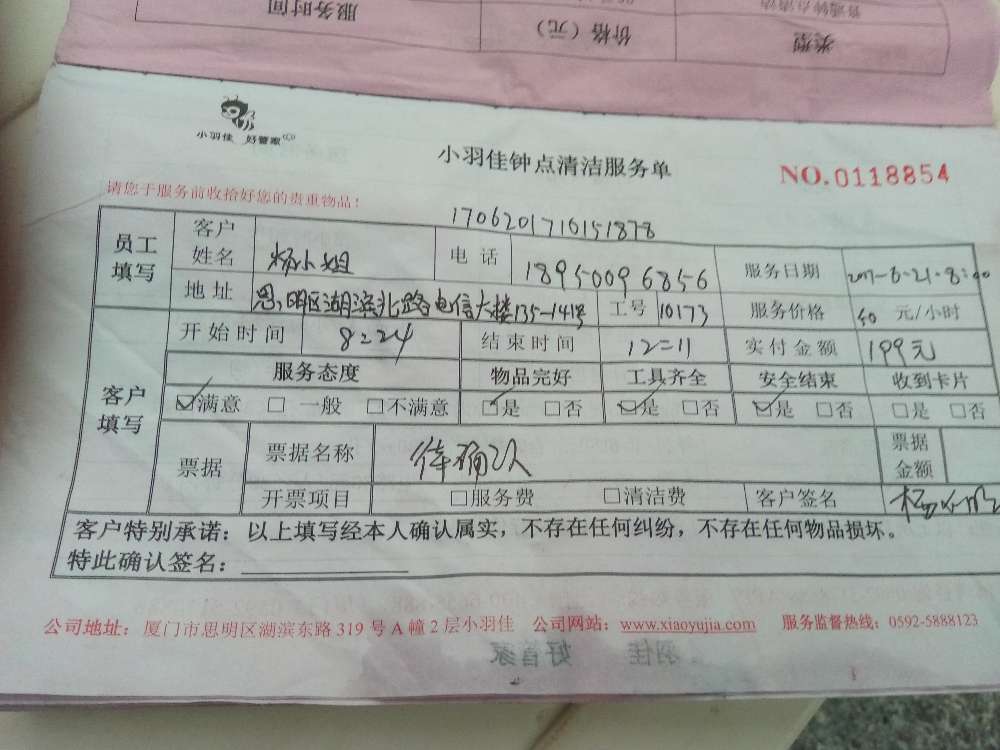 服务时间 价格（元） 类型
小羽佳 好管家
小羽佳钟点清洁服务单
NO.0118854
请您于服务前收拾好您的贵重物品！
1706201710151878
员工填写 客户姓名 杨小姐 电话 18950096856 服务日期 2017-6-21-8:00
地址 思明区湖滨北路电信大楼135-141号 工号 10173 服务价格 40 元/小时
客户填写 开始时间 8:24 结束时间 12:11 实付金额 199元
服务态度 物品完好 工具齐全 安全结束 收到卡片
☑满意 □一般 □不满意 ☑是 □否 ☑是 □否 ☑是 □否 □是 □否
票据 票据名称 待确认 票据金额
开票项目 □服务费 □清洁费 客户签名
客户特别承诺：以上填写经本人确认属实，不存在任何纠纷，不存在任何物品损坏。
特此确认签名：
公司地址：厦门市思明区湖滨东路 319 号 A 幢 2 层小羽佳 公司网站：www.xiaoyujia.com 服务监督热线：0592-5888123
羽佳 好管家